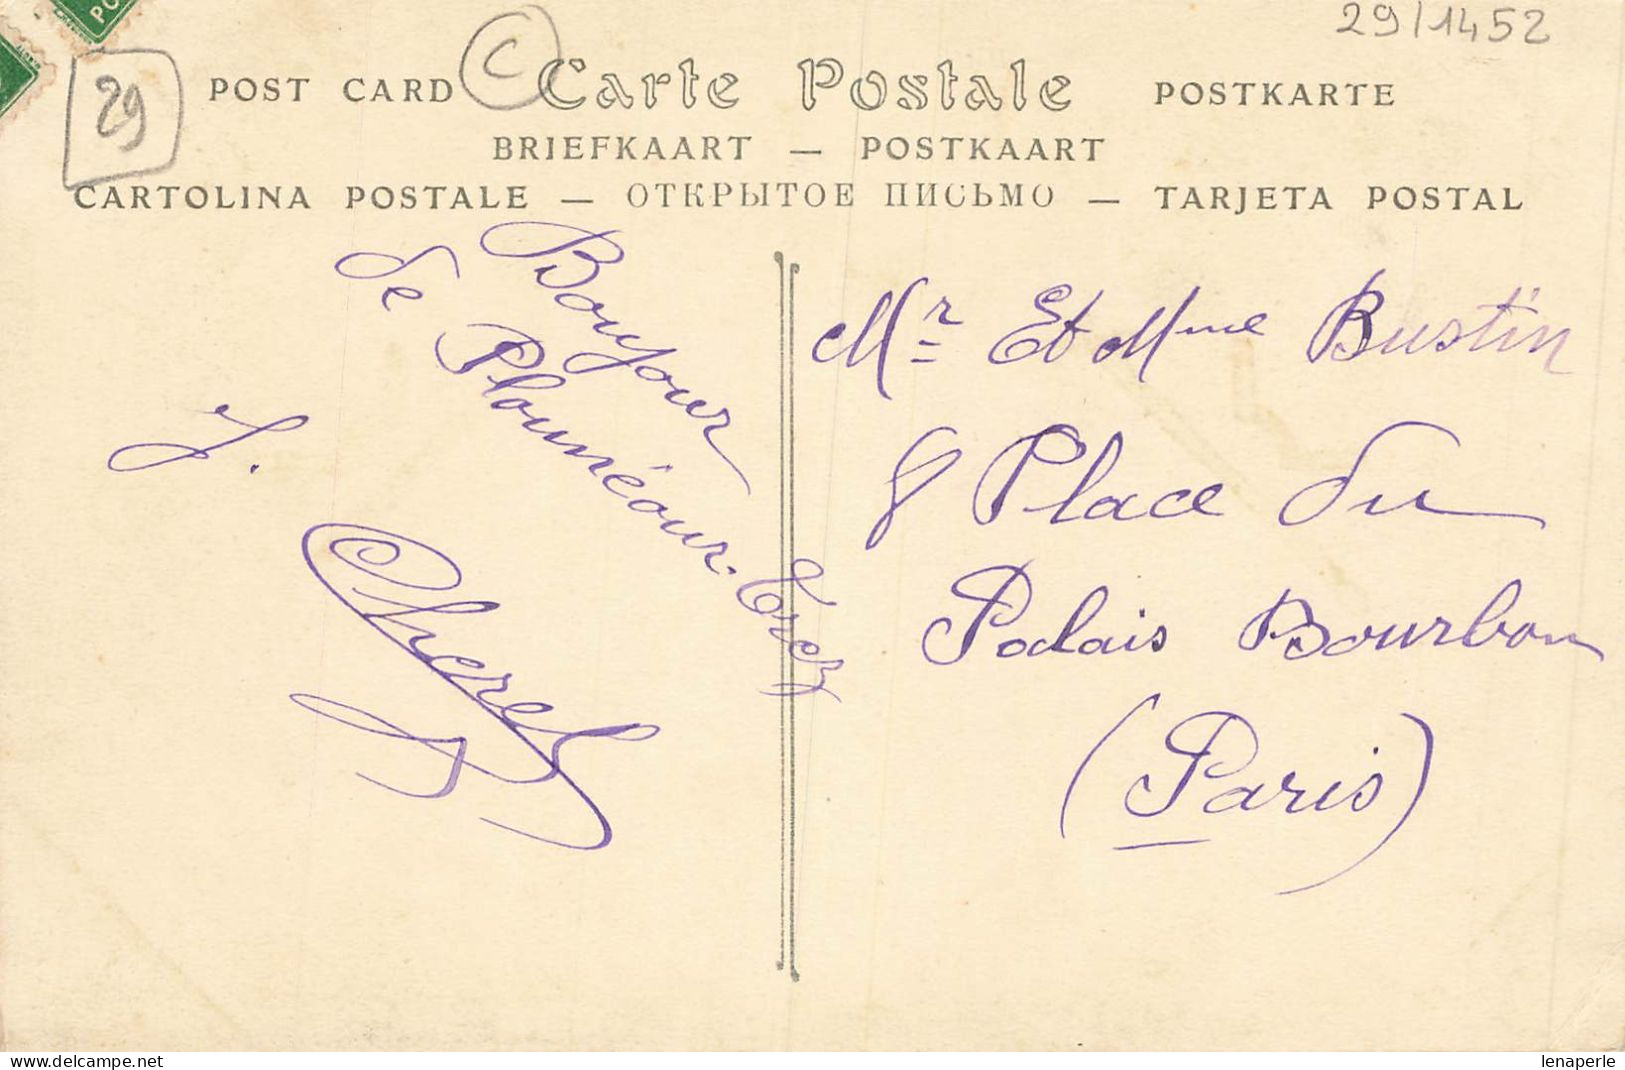 29/1452
29
C
POST CARD Carte Postale POSTKARTE
BRIEFKAART — POSTKAART
CARTOLINA POSTALE — ОТКРЫТОЕ ПИСЬМО — TARJETA POSTAL
Bonjour
de Plounéour-Trez
J.
Cherel
Mr Et Mme Bustin
8 Place du
Palais Bourbon
(Paris)
delcampe.net
lenaperle